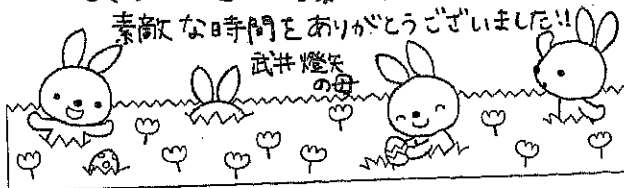 素敵な時間をありがとうございました!!
武井燈矢
の母